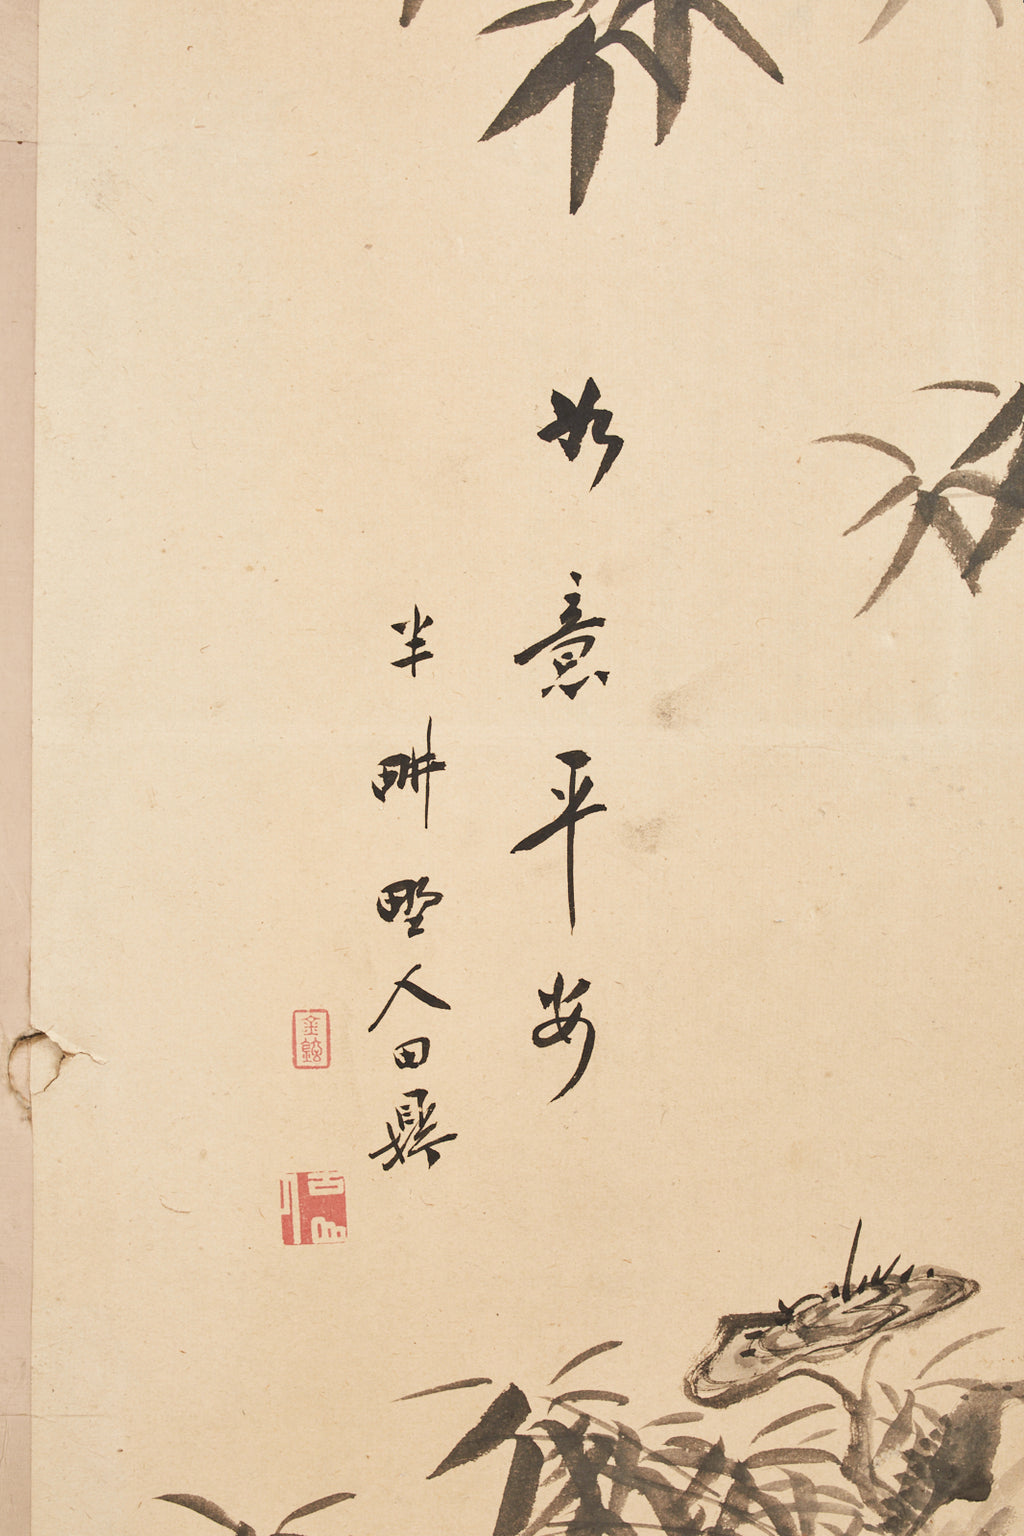 如意平安
半畊野人田興